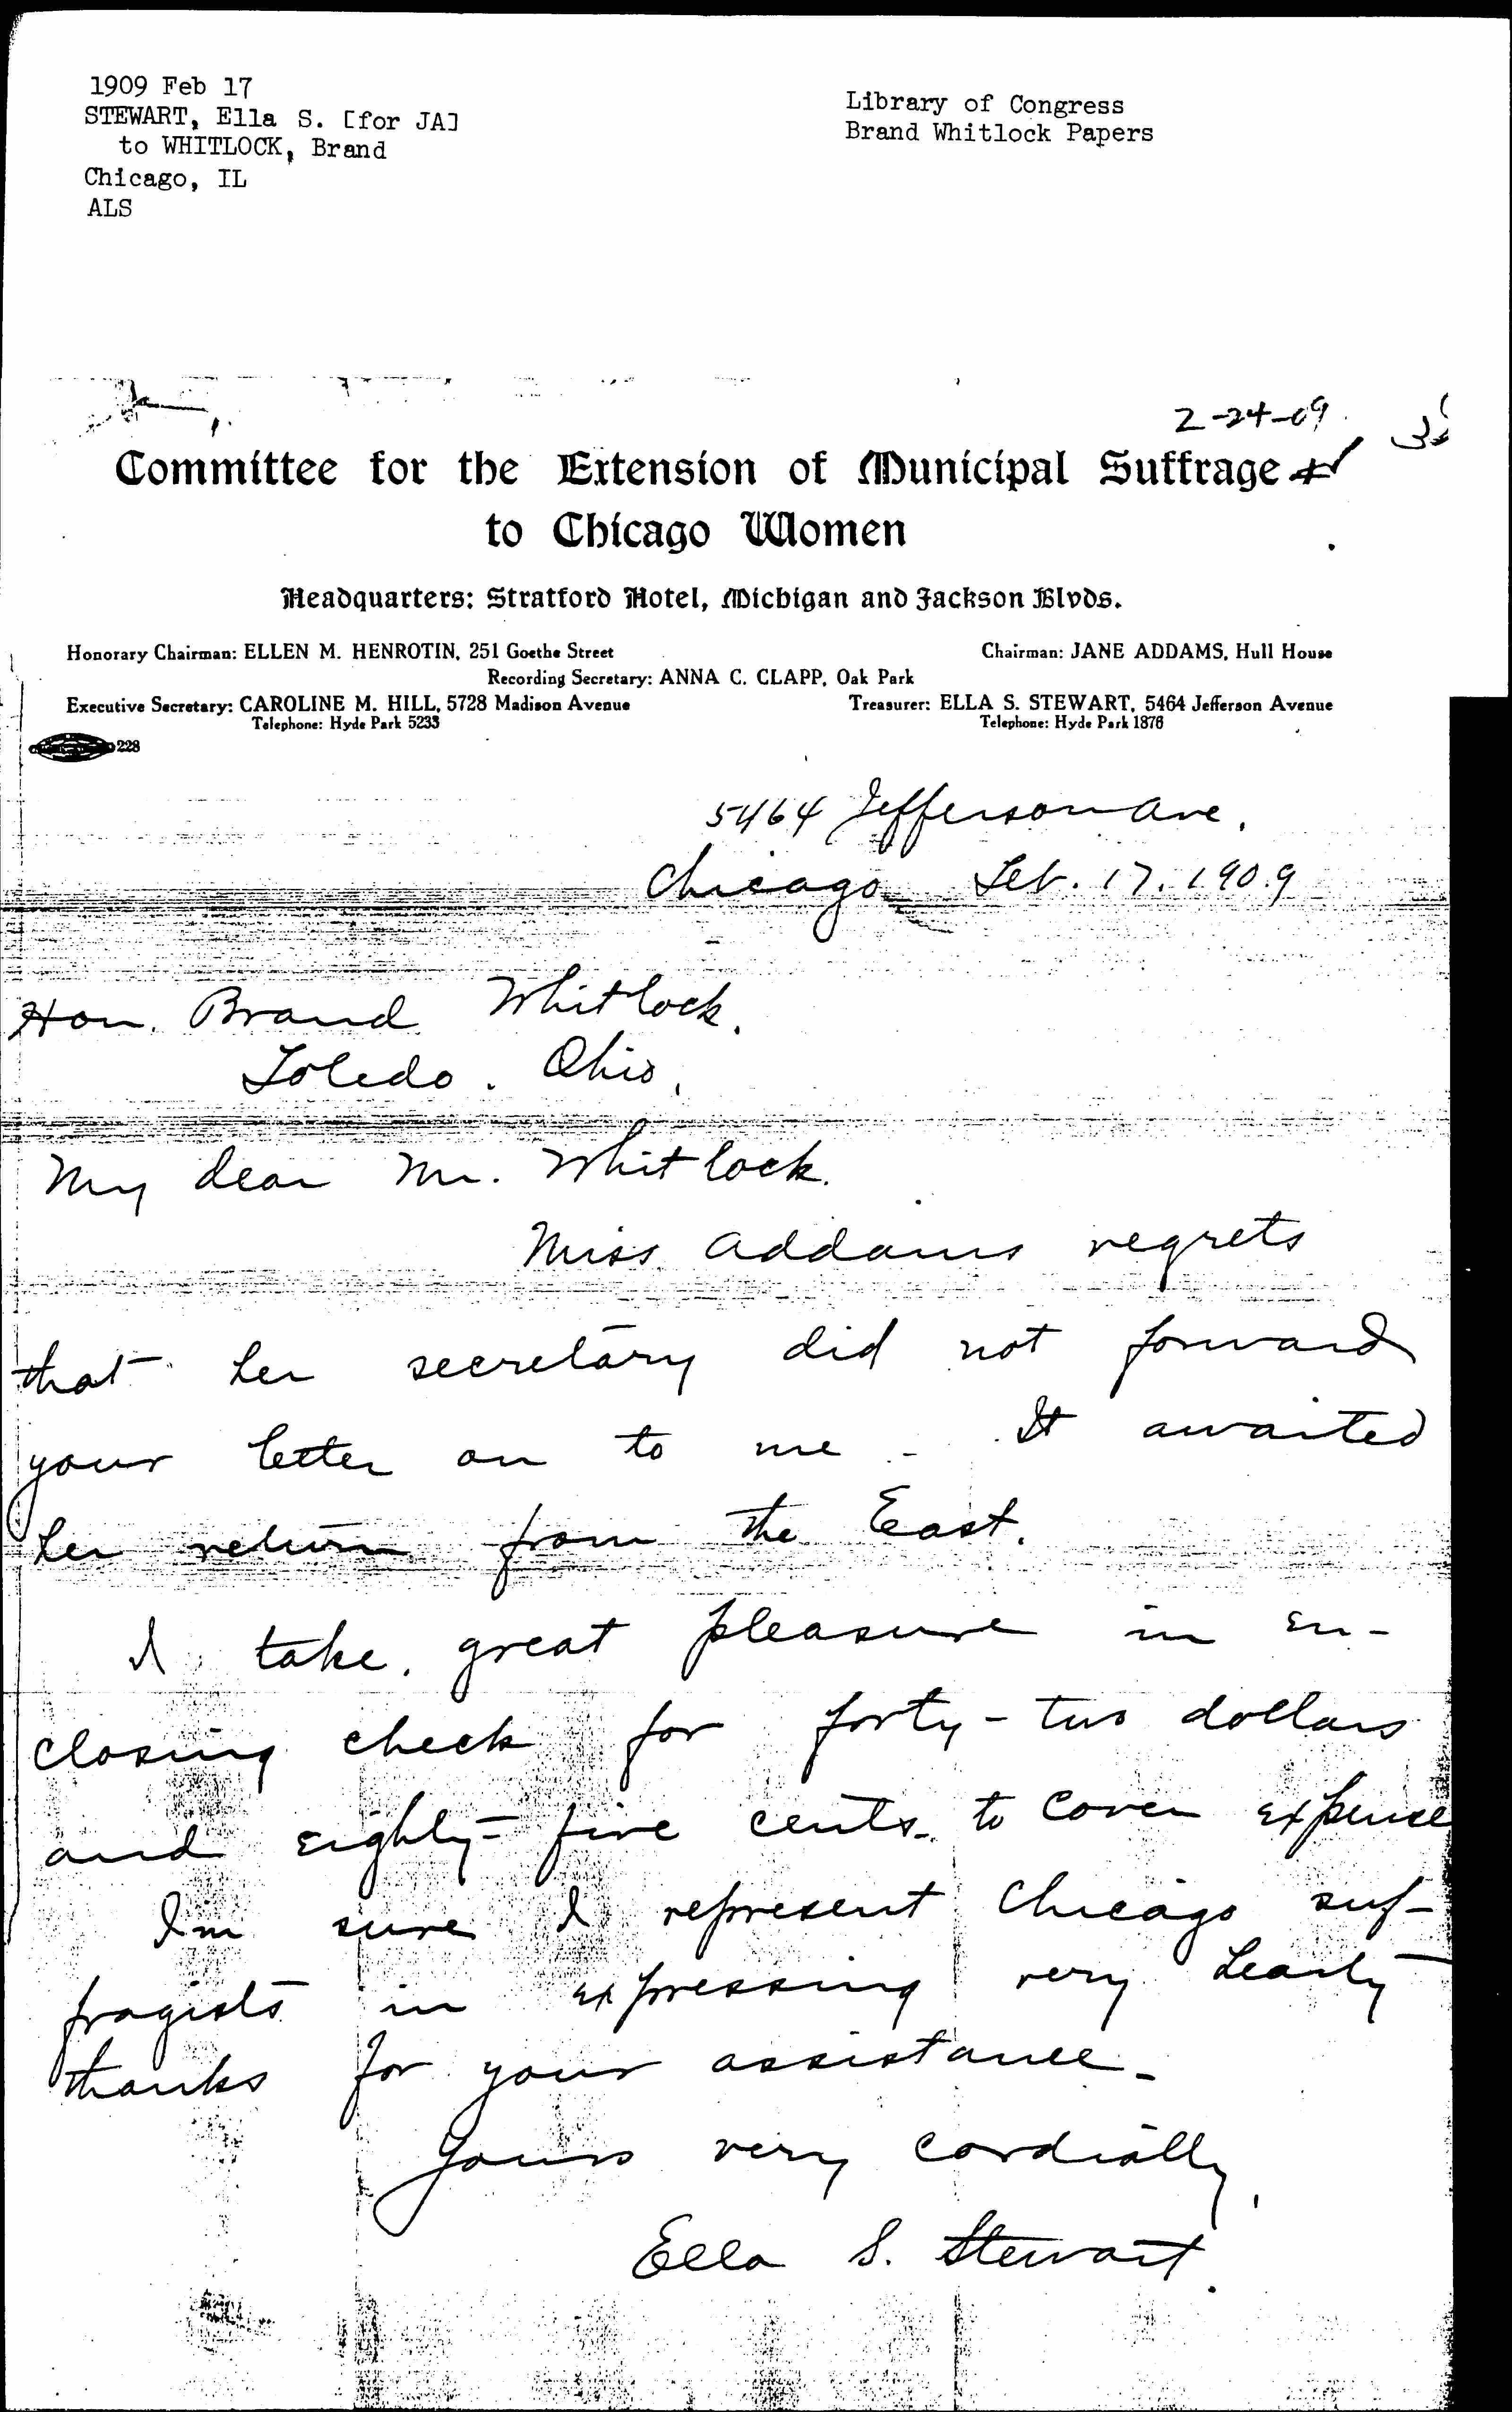 1909 Feb 17
STEWART, Ella S. [for JA]
to WHITLOCK, Brand
Chicago, IL
ALS
Library of Congress
Brand Whitlock Papers
2-24-09
Committee for the Extension of Municipal Suffrage
to Chicago Women
Headquarters: Stratford Hotel, Michigan and Jackson Blvds.
Honorary Chairman: ELLEN M. HENROTIN, 251 Goethe Street
Chairman: JANE ADDAMS, Hull House
Recording Secretary: ANNA C. CLAPP, Oak Park
Executive Secretary: CAROLINE M. HILL, 5728 Madison Avenue
Telephone: Hyde Park 5233
Treasurer: ELLA S. STEWART, 5464 Jefferson Avenue
Telephone: Hyde Park 1876
228
5464 Jefferson Ave.
Chicago Feb. 17. 1909
Hon. Brand Whitlock.
Toledo. Ohio.
My dear Mr. Whitlock.
Miss Addams regrets
that her secretary did not forward
your letter on to me - It awaited
her return from the East.
I take great pleasure in en-
closing check for forty-two dollars
and eighty-five cents to cover expense
I'm sure I represent Chicago suf-
fragists in expressing very hearty
thanks for your assistance -
Yours very cordially,
Ella S. Stewart.